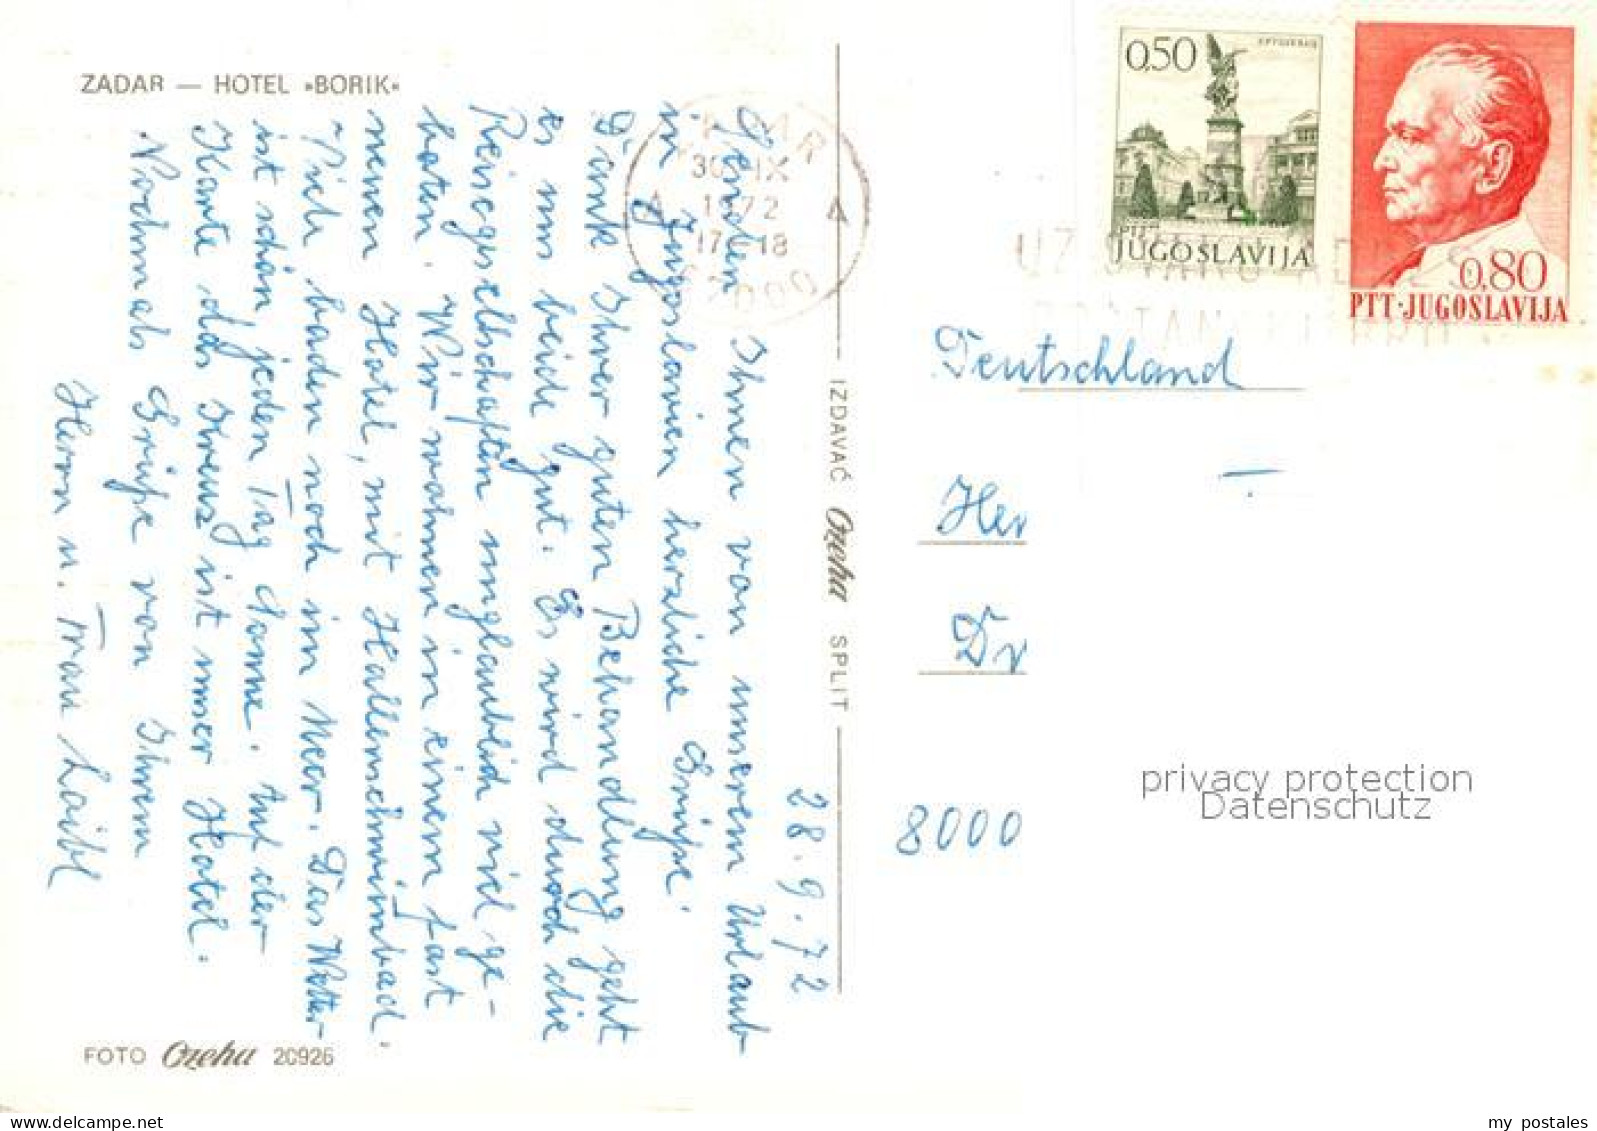 ZADAR — HOTEL »BORIK«
28.9.72
Senden Ihnen von unserem Urlaub
in Jugoslavien herzliche Grüße.
Dank Ihrer guten Behandlung geht
es uns beide gut. Es wird durch die
Reisegesellschaften unglaublich viel ge-
boten. Wir wohnen in einem fast
neuen Hotel, mit Hallenschwimbad.
Sich baden noch im Meer. Das Wetter
ist schön jeden Tag Sonne. Auf der
Karte das Kreuz ist unser Hotel.
Nochmals Grüße von Ihnen
Herrn u. Frau Laibl
FOTO Ozeha 20926
IZDAVAČ Ozeha SPLIT
ZADAR
30 IX
1972
17-18
A A
0,50
PTT
JUGOSLAVIJA
0,80
PTT-JUGOSLAVIJA
Deutschland
Her
Dr
8000
privacy protection
Datenschutz
my postales